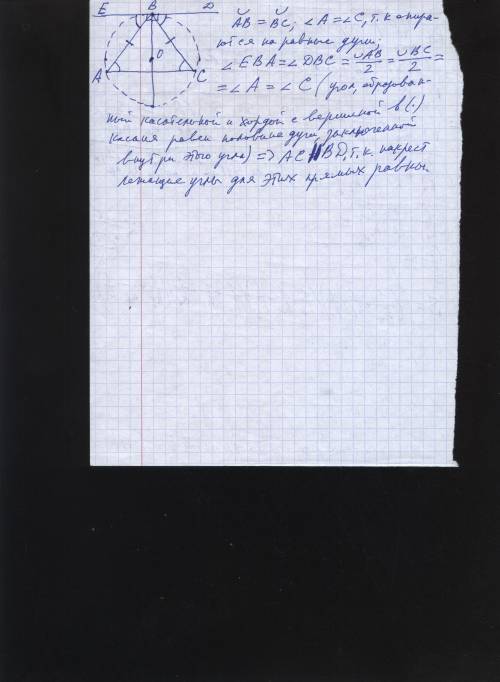 E B D
О
A C
◡AB = ◡BC; ∠A = ∠C, т.к опира-
ются на равные дуги;
∠EBA = ∠DBC = ◡AB/2 = ◡BC/2 =
= ∠A = ∠C (угол, образован-
ный касательной и хордой с вершиной в (·)
касания равен половине дуги, заключенной
внутри этого угла) => AC ∥ BD, т.к. накрест
лежащие углы для этих прямых равны.